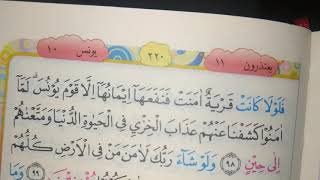 يعتذرون ١١ ٢٢٠ يونس ١٠
فَلَوْلَا كَانَتْ قَرْيَةٌ اٰمَنَتْ فَنَفَعَهَآ اِيْمَانُهَآ اِلَّا قَوْمَ يُوْنُسَ ۗ لَمَّآ
اٰمَنُوْا كَشَفْنَا عَنْهُمْ عَذَابَ الْخِزْيِ فِي الْحَيٰوةِ الدُّنْيَا وَمَتَّعْنٰهُمْ
اِلٰى حِيْنٍ ﴿٩٨﴾ وَلَوْ شَآءَ رَبُّكَ لَاٰمَنَ مَنْ فِي الْاَرْضِ كُلُّهُمْ
﴿٩٩﴾ وَمَا